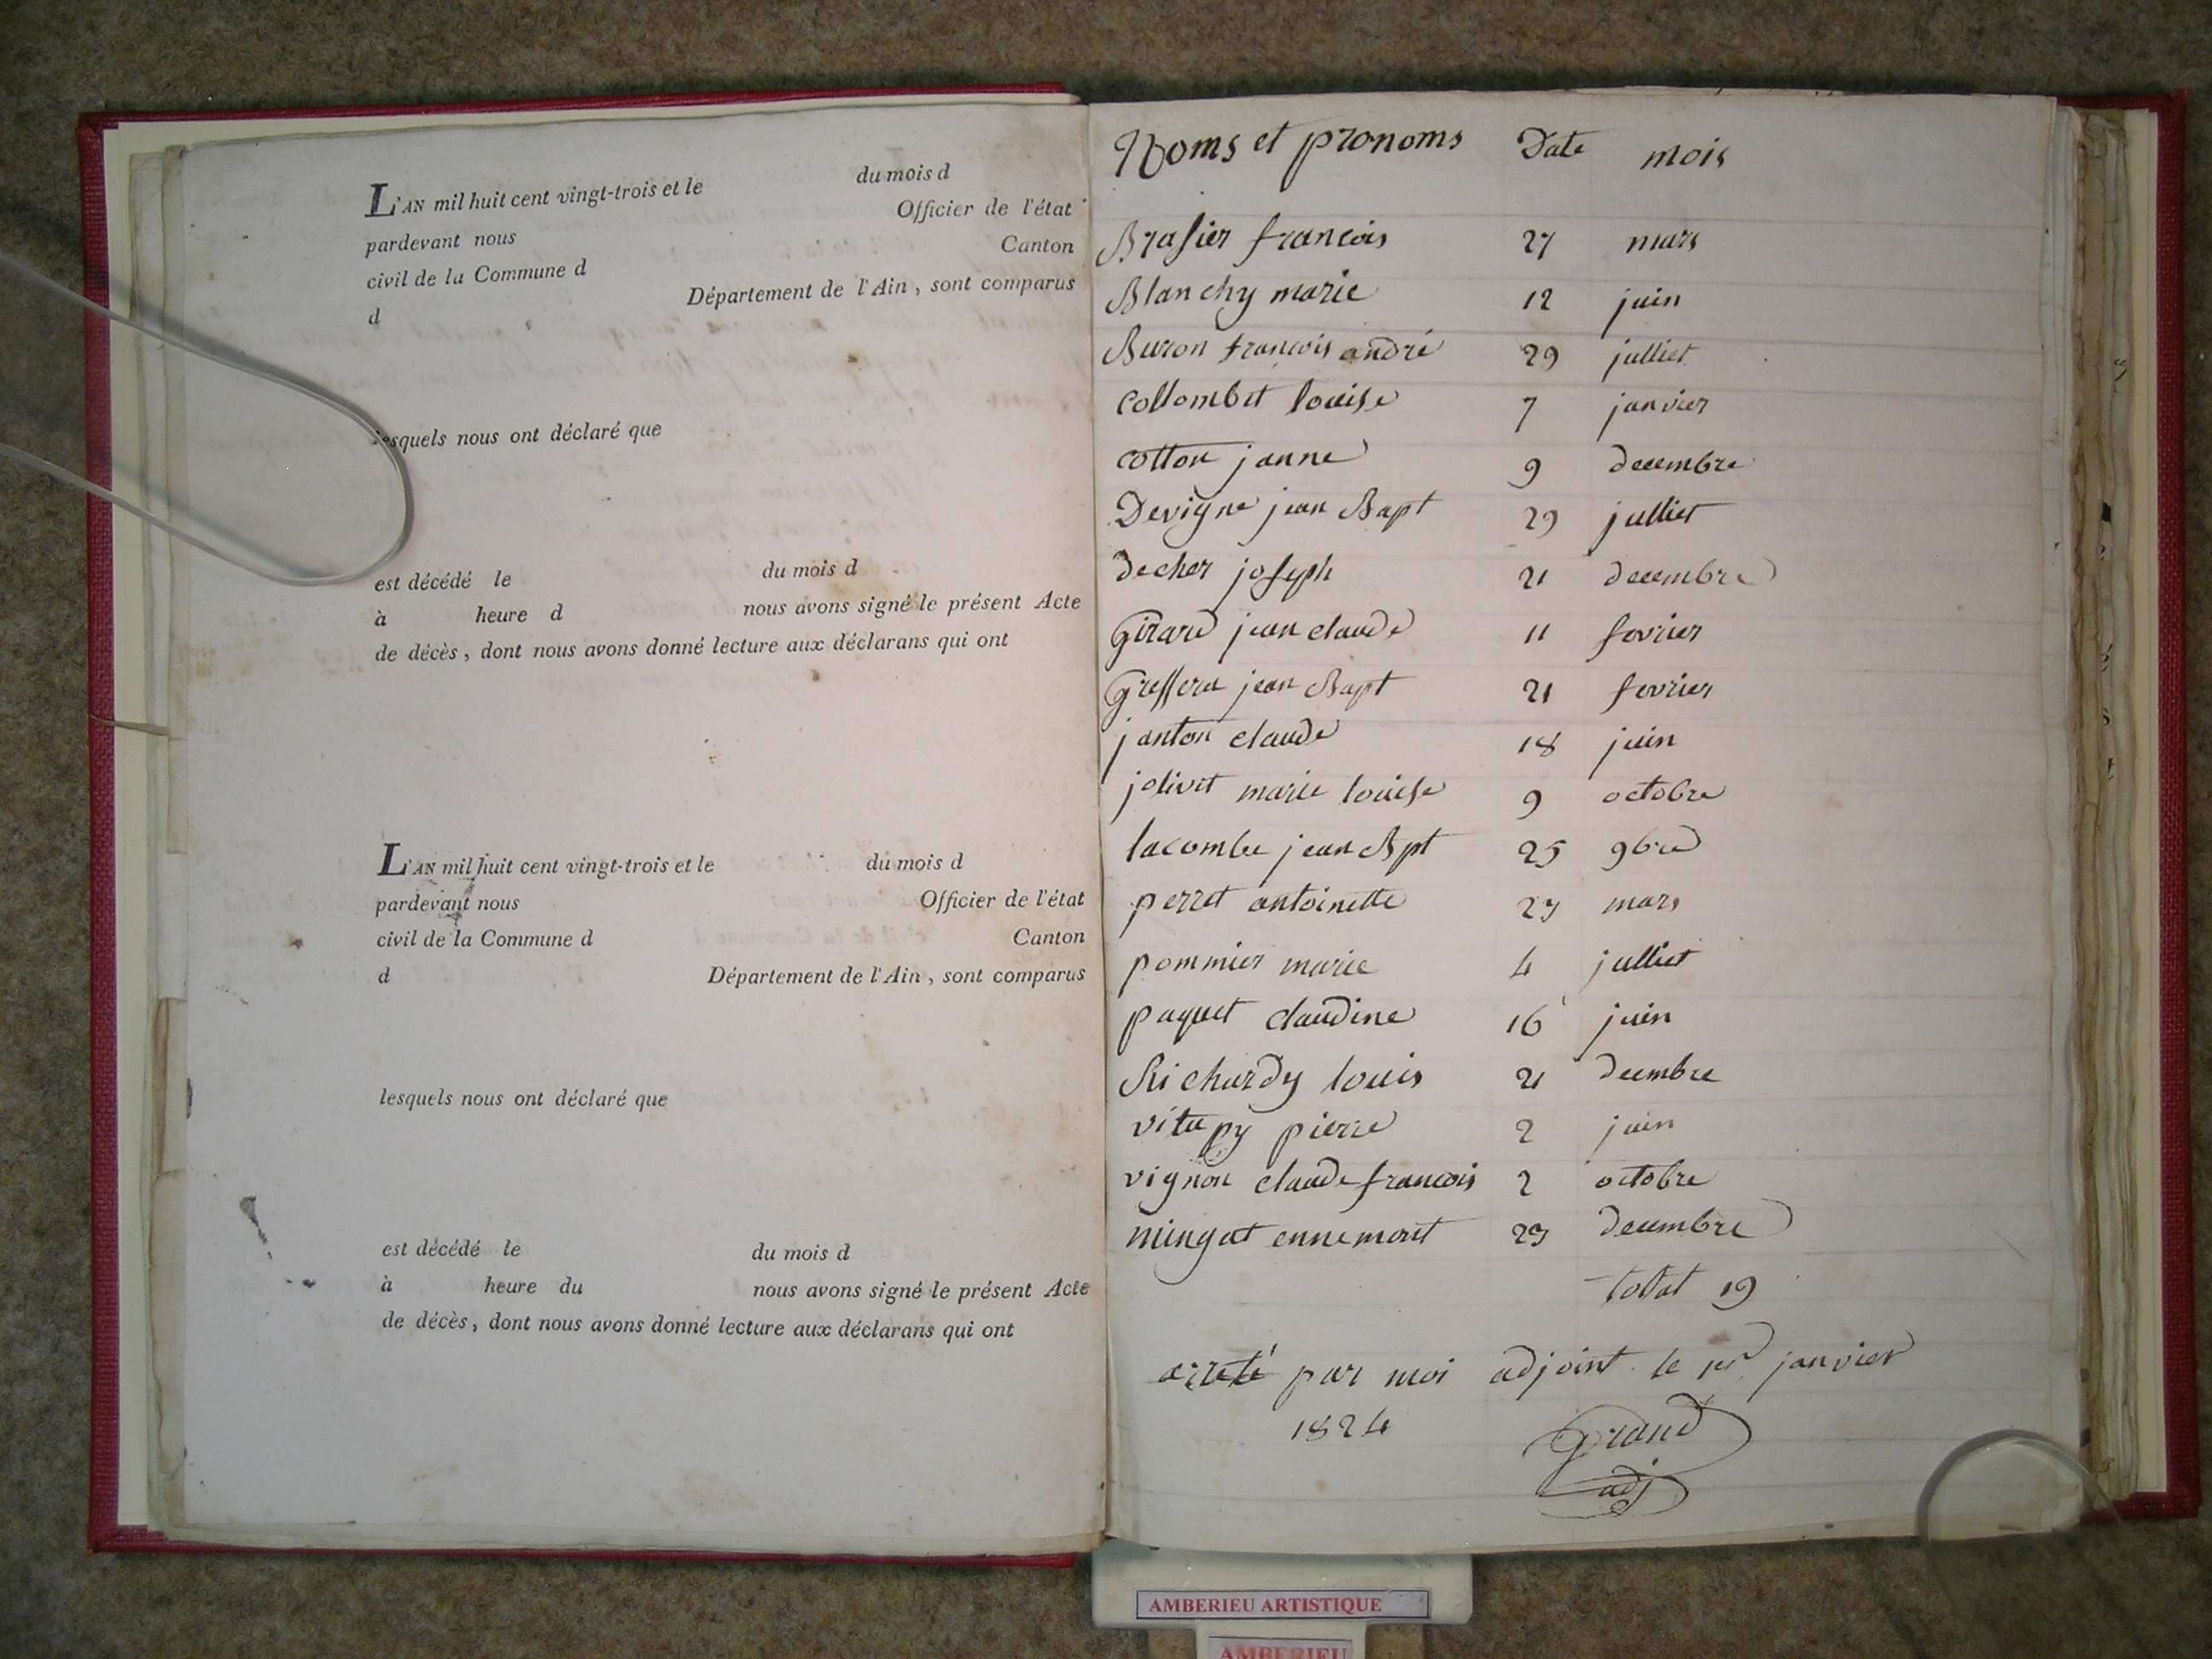 L'AN mil huit cent vingt-trois et le du mois d
pardevant nous Officier de l'état
civil de la Commune d Canton
d Département de l'Ain, sont comparus
lesquels nous ont déclaré que
est décédé le du mois d
à heure d nous avons signé le présent Acte
de décès, dont nous avons donné lecture aux déclarans qui ont
L'AN mil huit cent vingt-trois et le du mois d
pardevant nous Officier de l'état
civil de la Commune d Canton
d Département de l'Ain, sont comparus
lesquels nous ont déclaré que
est décédé le du mois d
à heure du nous avons signé le présent Acte
de décès, dont nous avons donné lecture aux déclarans qui ont
Noms et pronoms Date mois
Brasier francois 27 mars
Blanchy marie 12 juin
Buron francois andré 29 julliet
collombet louise 7 janvier
cotton janne 9 decembre
Devigne jean Bapt 29 julliet
decher joseph 21 decembre
Girard jean claude 11 fevrier
jean Bapt 21 fevrier
janton claude 18 juin
jolivet marie louise 9 octobre
lacombe jean Bpt 25 9bre
perret antoinette 27 mars
pommier marie 4 julliet
paquet claudine 16 juin
Richardy louis 21 decmbre
vitupy pierre 2 juin
vignon claude francois 2 octobre
mingat ennemont 29 decembre
total 19
arreté par moi adjoint le 1er janvier
1824 Grand
adj
AMBERIEU ARTISTIQUE
AMBERIEU